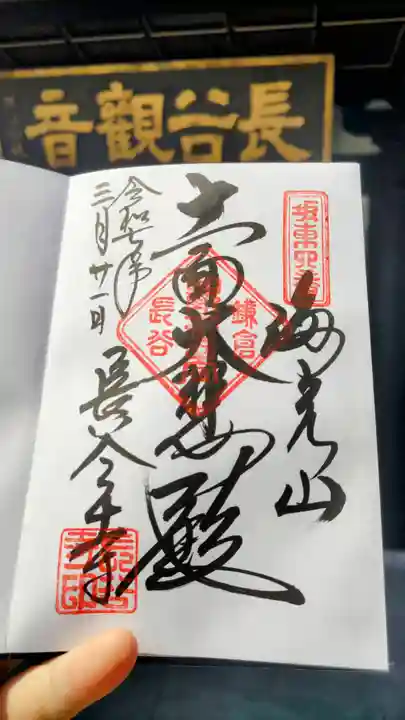 長谷觀音
坂東四番
海光山
十一面大悲殿
鎌倉
長谷
令和七年
三月廿一日
長谷寺